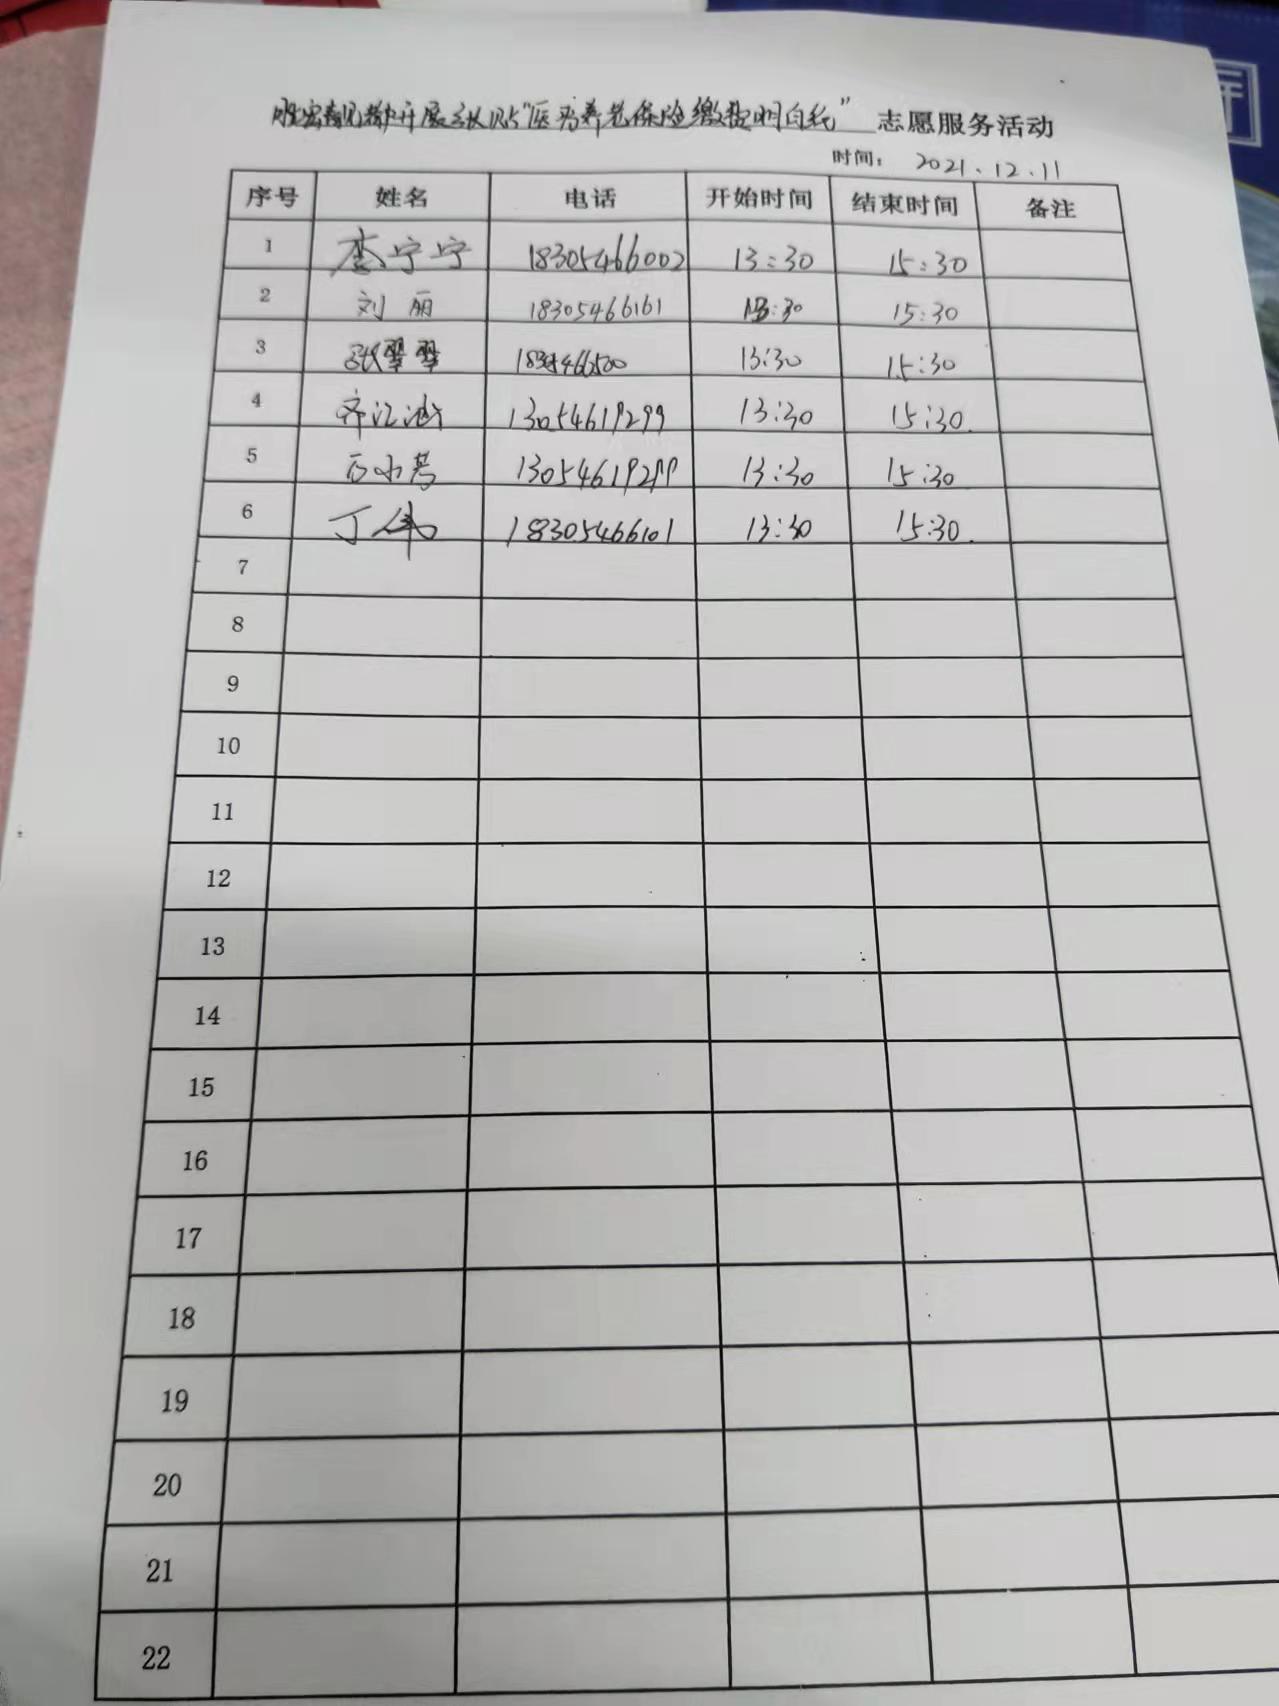 开展张贴"医疗养老保险缴费明白纸" 志愿服务活动
时间: 2021.12.11
序号 姓名 电话 开始时间 结束时间 备注
1 李宁宁 18305466002 13:30 15:30
2 刘丽 18305466161 13:30 15:30
3 张翠翠 13:30 15:30
4 齐江涵 13054619299 13:30 15:30
5 13054619299 13:30 15:30
6 丁伟 18305466101 13:30 15:30
7
8
9
10
11
12
13
14
15
16
17
18
19
20
21
22